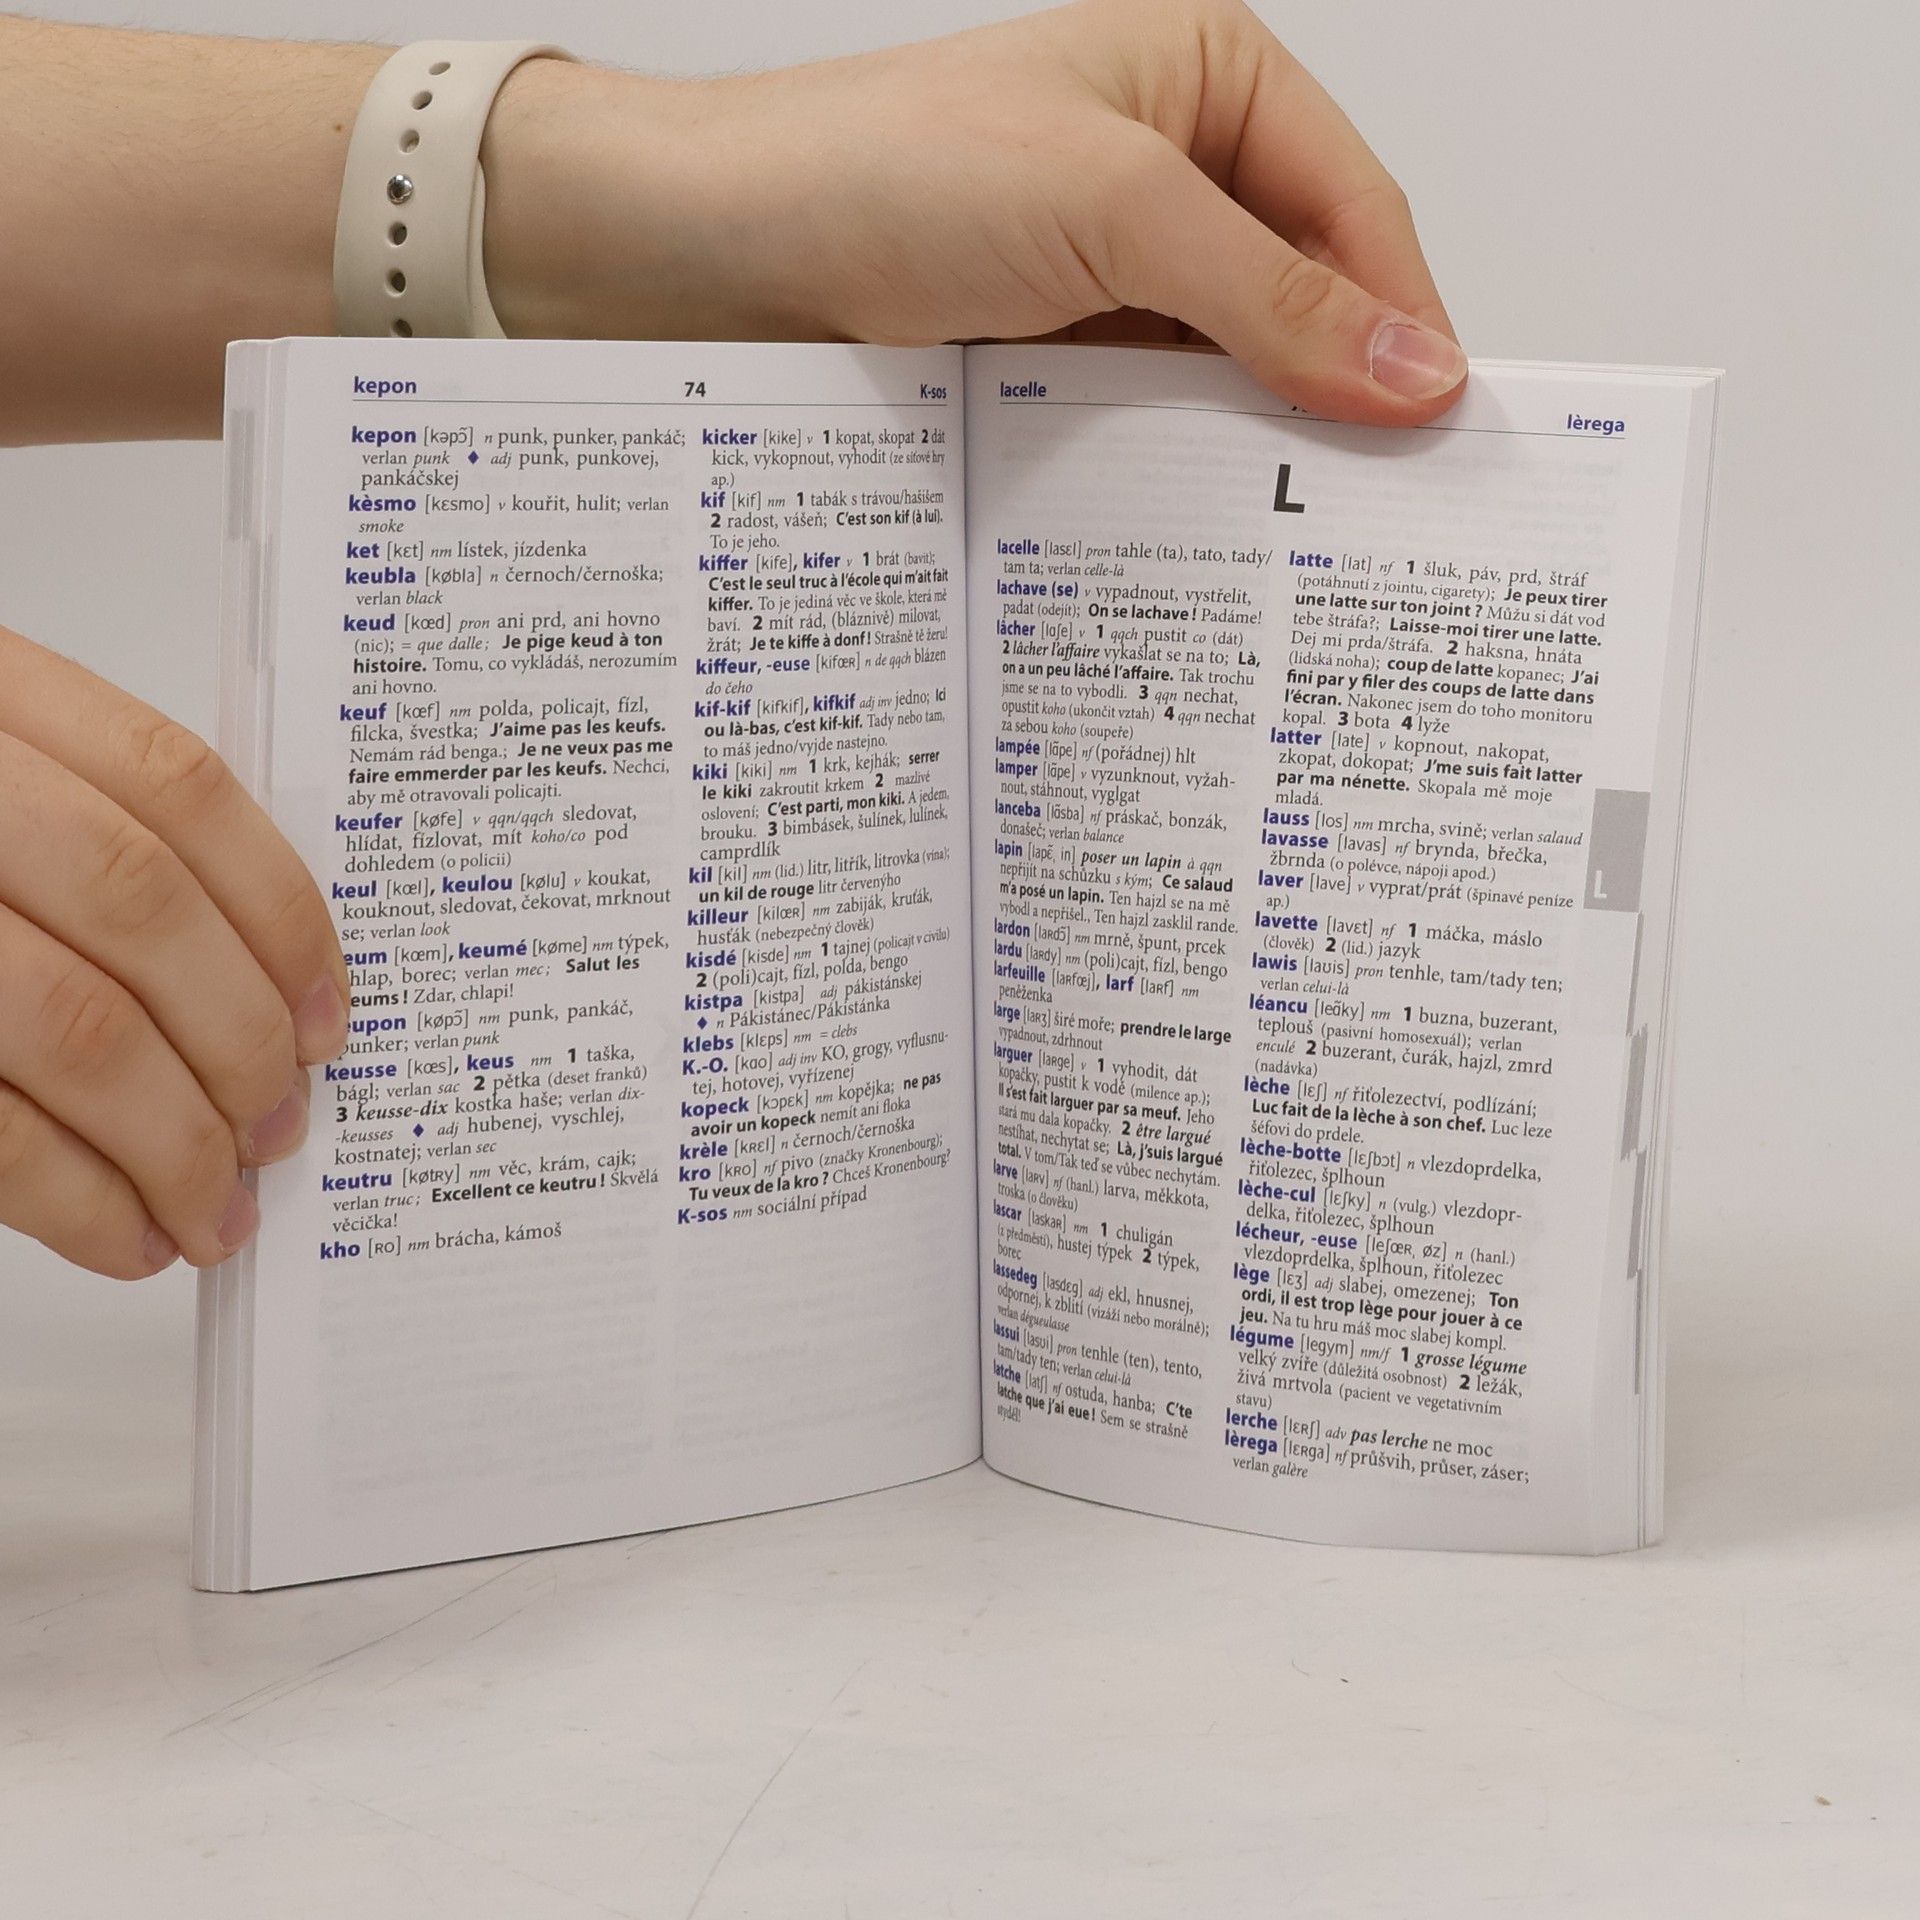 kepon 74 K-sos
kepon [kəpɔ̃] n punk, punker, pankáč;
verlan punk ♦ adj punk, punkovej,
pankáčskej
kèsmo [kɛsmo] v kouřit, hulit; verlan
smoke
ket [kɛt] nm lístek, jízdenka
keubla [købla] n černoch/černoška;
verlan black
keud [kœd] pron ani prd, ani hovno
(nic); = que dalle; Je pige keud à ton
histoire. Tomu, co vykládáš, nerozumím
ani hovno.
keuf [kœf] nm polda, policajt, fízl,
filcka, švestka; J'aime pas les keufs.
Nemám rád benga.; Je ne veux pas me
faire emmerder par les keufs. Nechci,
aby mě otravovali policajti.
keufer [køfe] v qqn/qqch sledovat,
hlídat, fízlovat, mít koho/co pod
dohledem (o policii)
keul [kœl], keulou [kølu] v koukat,
kouknout, sledovat, čekovat, mrknout
se; verlan look
eum [kœm], keumé [køme] nm týpek,
hlap, borec; verlan mec; Salut les
eums ! Zdar, chlapi!
eupon [køpɔ̃] nm punk, pankáč,
punker; verlan punk
keusse [kœs], keus nm 1 taška,
bágl; verlan sac 2 pětka (deset franků)
3 keusse-dix kostka haše; verlan dix-
-keusses ♦ adj hubenej, vyschlej,
kostnatej; verlan sec
keutru [køtʀy] nm věc, krám, cajk;
verlan truc; Excellent ce keutru ! Skvělá
věcička!
kho [ʀo] nm brácha, kámoš
kicker [kike] v 1 kopat, skopat 2 dát
kick, vykopnout, vyhodit (ze síťové hry
ap.)
kif [kif] nm 1 tabák s trávou/hašišem
2 radost, vášeň; C'est son kif (à lui).
To je jeho.
kiffer [kife], kifer v 1 brát (bavit);
C'est le seul truc à l'école qui m'ait fait
kiffer. To je jediná věc ve škole, která mě
baví. 2 mít rád, (bláznivě) milovat,
žrát; Je te kiffe à donf ! Strašně tě žeru!
kiffeur, -euse [kifœʀ] n de qqch blázen
do čeho
kif-kif [kifkif], kifkif adj inv jedno; Ici
ou là-bas, c'est kif-kif. Tady nebo tam,
to máš jedno/vyjde nastejno.
kiki [kiki] nm 1 krk, kejhák; serrer
le kiki zakroutit krkem 2 mazlivé
oslovení; C'est parti, mon kiki. A jedem,
brouku. 3 bimbásek, šulínek, lulínek,
camprdlík
kil [kil] nm (lid.) litr, litřík, litrovka (vína);
un kil de rouge litr červenýho
killeur [kilœʀ] nm zabiják, kruťák,
husťák (nebezpečný člověk)
kisdé [kisde] nm 1 tajnej (policajt v civilu)
2 (poli)cajt, fízl, polda, bengo
kistpa [kistpa] adj pákistánskej
♦ n Pákistánec/Pákistánka
klebs [klɛps] nm = clebs
K.-O. [kao] adj inv KO, grogy, vyflusnu-
tej, hotovej, vyřízenej
kopeck [kɔpɛk] nm kopějka; ne pas
avoir un kopeck nemít ani floka
krèle [kʀɛl] n černoch/černoška
kro [kʀo] nf pivo (značky Kronenbourg);
Tu veux de la kro ? Chceš Kronenbourg?
K-sos nm sociální případ
lacelle lèrega
L
lacelle [lasɛl] pron tahle (ta), tato, tady/
tam ta; verlan celle-là
lachave (se) v vypadnout, vystřelit,
padat (odejít); On se lachave ! Padáme!
lâcher [lɑʃe] v 1 qqch pustit co (dát)
2 lâcher l'affaire vykašlat se na to; Là,
on a un peu lâché l'affaire. Tak trochu
jsme se na to vybodli. 3 qqn nechat,
opustit koho (ukončit vztah) 4 qqn nechat
za sebou koho (soupeře)
lampée [lɑ̃pe] nf (pořádnej) hlt
lamper [lɑ̃pe] v vyzunknout, vyžah-
nout, stáhnout, vyglgat
lanceba [lɑ̃sba] nf práskač, bonzák,
donašeč; verlan balance
lapin [lapɛ̃, in] poser un lapin à qqn
nepřijít na schůzku s kým; Ce salaud
m'a posé un lapin. Ten hajzl se na mě
vybodl a nepřišel., Ten hajzl zasklil rande.
lardon [laʀdɔ̃] nm mrně, špunt, prcek
lardu [laʀdy] nm (poli)cajt, fízl, bengo
larfeuille [laʀfœj], larf [laʀf] nm
peněženka
large [laʀʒ] širé moře; prendre le large
vypadnout, zdrhnout
larguer [laʀge] v 1 vyhodit, dát
kopačky, pustit k vodě (milence ap.);
Il s'est fait larguer par sa meuf. Jeho
stará mu dala kopačky. 2 être largué
nestíhat, nechytat se; Là, j'suis largué
total. V tom/Tak teď se vůbec nechytám.
larve [laʀv] nf (hanl.) larva, měkkota,
troska (o člověku)
lascar [laskaʀ] nm 1 chuligán
(z předměstí), hustej týpek 2 týpek,
borec
lassedeg [lasdɛg] adj ekl, hnusnej,
odpornej, k zblití (vizáží nebo morálně);
verlan dégueulasse
lassui [lasɥi] pron tenhle (ten), tento,
tam/tady ten; verlan celui-là
latche [latʃ] nf ostuda, hanba; C'te
latche que j'ai eue ! Sem se strašně
styděl!
latte [lat] nf 1 šluk, páv, prd, štráf
(potáhnutí z jointu, cigarety); Je peux tirer
une latte sur ton joint ? Můžu si dát vod
tebe štráfa?; Laisse-moi tirer une latte.
Dej mi prda/štráfa. 2 haksna, hnáta
(lidská noha); coup de latte kopanec; J'ai
fini par y filer des coups de latte dans
l'écran. Nakonec jsem do toho monitoru
kopal. 3 bota 4 lyže
latter [late] v kopnout, nakopat,
zkopat, dokopat; J'me suis fait latter
par ma nénette. Skopala mě moje
mladá.
lauss [los] nm mrcha, svině; verlan salaud
lavasse [lavas] nf brynda, břečka,
žbrnda (o polévce, nápoji apod.)
laver [lave] v vyprat/prát (špinavé peníze
ap.)
lavette [lavɛt] nf 1 máčka, máslo
(člověk) 2 (lid.) jazyk
lawis [laɥis] pron tenhle, tam/tady ten;
verlan celui-là
léancu [leɑ̃ky] nm 1 buzna, buzerant,
teplouš (pasivní homosexuál); verlan
enculé 2 buzerant, čurák, hajzl, zmrd
(nadávka)
lèche [lɛʃ] nf řiťolezectví, podlízání;
Luc fait de la lèche à son chef. Luc leze
šéfovi do prdele.
lèche-botte [lɛʃbɔt] n vlezdoprdelka,
řiťolezec, šplhoun
lèche-cul [lɛʃky] n (vulg.) vlezdopr-
delka, řiťolezec, šplhoun
lécheur, -euse [leʃœʀ, øz] n (hanl.)
vlezdoprdelka, šplhoun, řiťolezec
lège [lɛʒ] adj slabej, omezenej; Ton
ordi, il est trop lège pour jouer à ce
jeu. Na tu hru máš moc slabej kompl.
légume [legym] nm/f 1 grosse légume
velký zvíře (důležitá osobnost) 2 ležák,
živá mrtvola (pacient ve vegetativním
stavu)
lerche [lɛʀʃ] adv pas lerche ne moc
lèrega [lɛʀga] nf průšvih, průser, záser;
verlan galère
L